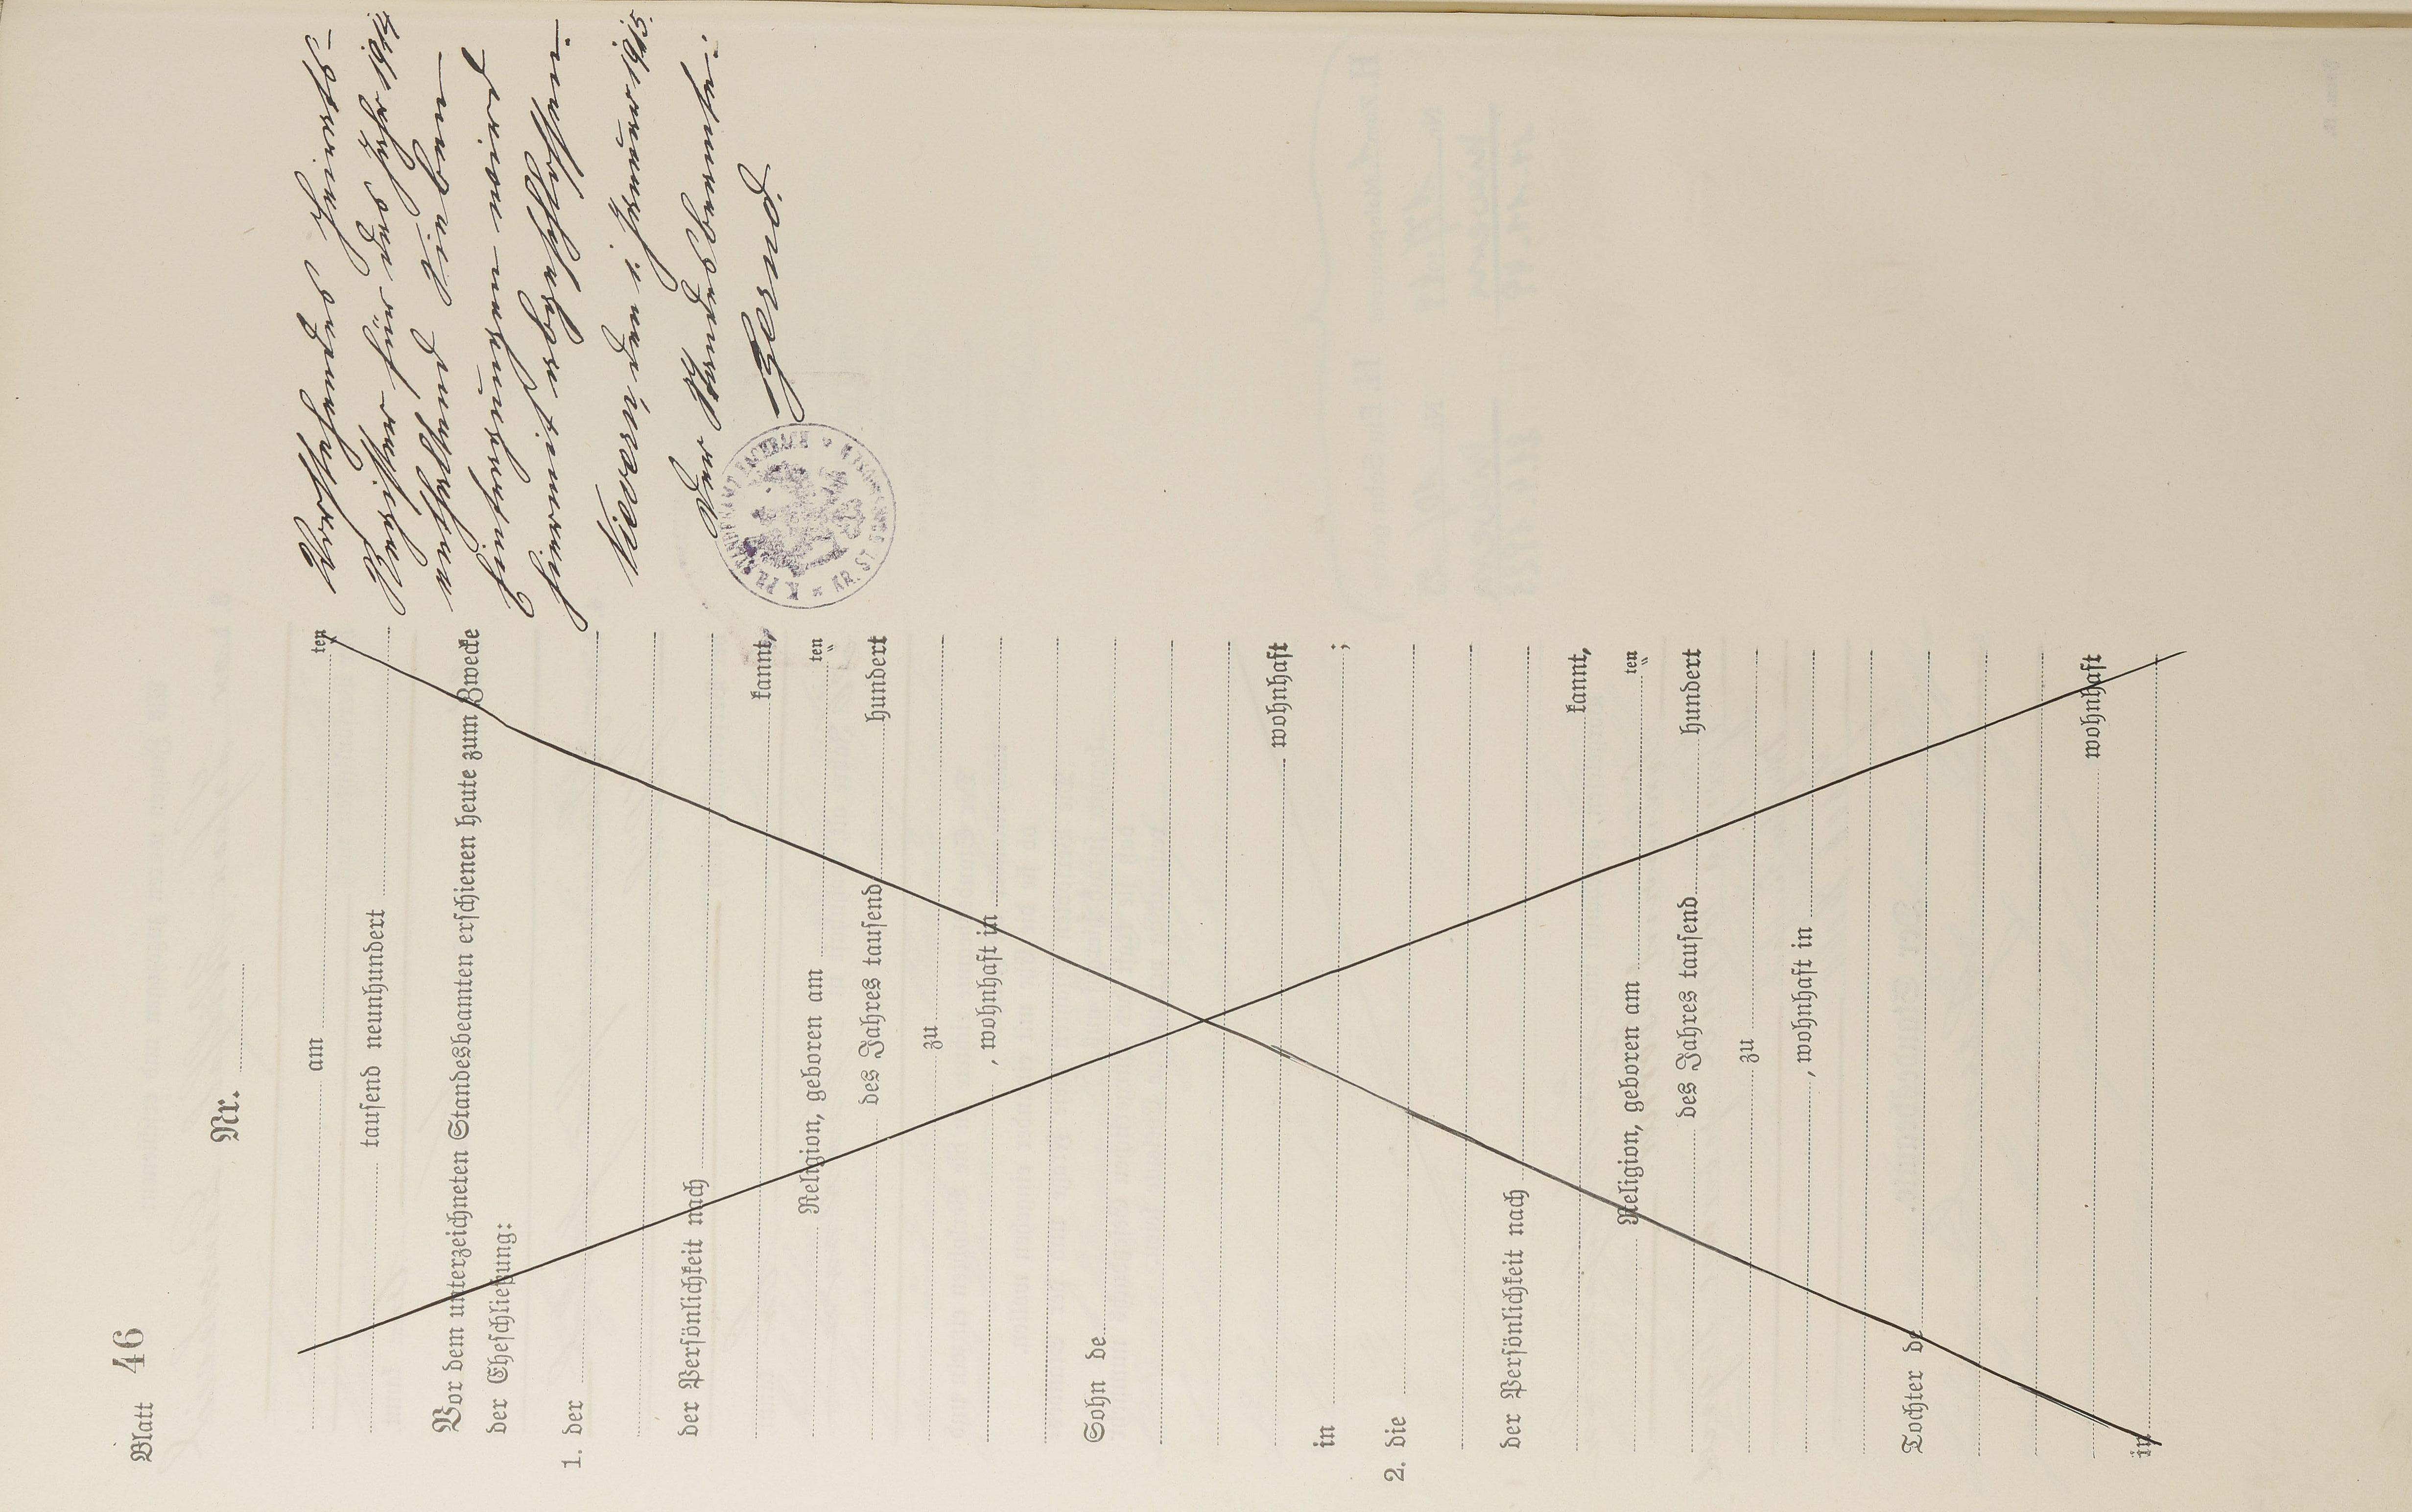 Blatt 46
Nr.
am ten
tausend neunhundert
Vor dem unterzeichneten Standesbeamten erschienen heute zum Zwecke
der Eheschließung:
1. der
der Persönlichkeit nach
kannt,
Religion, geboren am ten
des Jahres tausend hundert
zu
, wohnhaft in
Sohn de
wohnhaft
in ;
2. die
der Persönlichkeit nach
kannt,
Religion, geboren am ten
des Jahres tausend hundert
zu
, wohnhaft in
Tochter de
wohnhaft
in
Vorstehendes Heirats-
Register für das Jahr 1914
umfassend sieben
Eintragungen wird
hiermit abgeschlossen.
den 1. Januar 1915.
Der Standesbeamte:
K. PR. STANDESAMT
KR. ST.